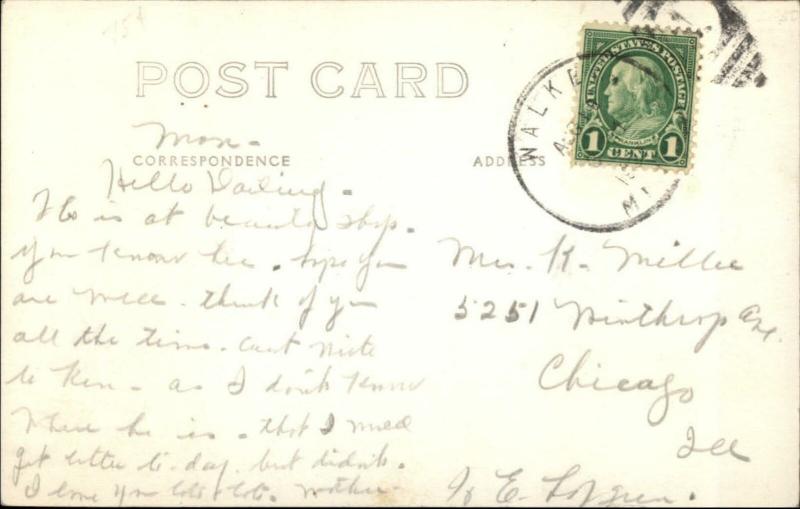 75¢
POST CARD
WALKE
AUG
MI
UNITED STATES POSTAGE
FRANKLIN
1 CENT 1
Mon-
CORRESPONDENCE
ADDRESS
Hello Darling -
Flo is at beauty shop.
You know her. hope you
are well. think of you
all the time. Can't write
to Ken - as I don't know
where he is. thot I would
get letter to-day. but didn't.
I love you lots & lots. Mother
Mrs. K. Miller
5251 Winthrop Ave.
Chicago
Ill
% E. Lofgren.